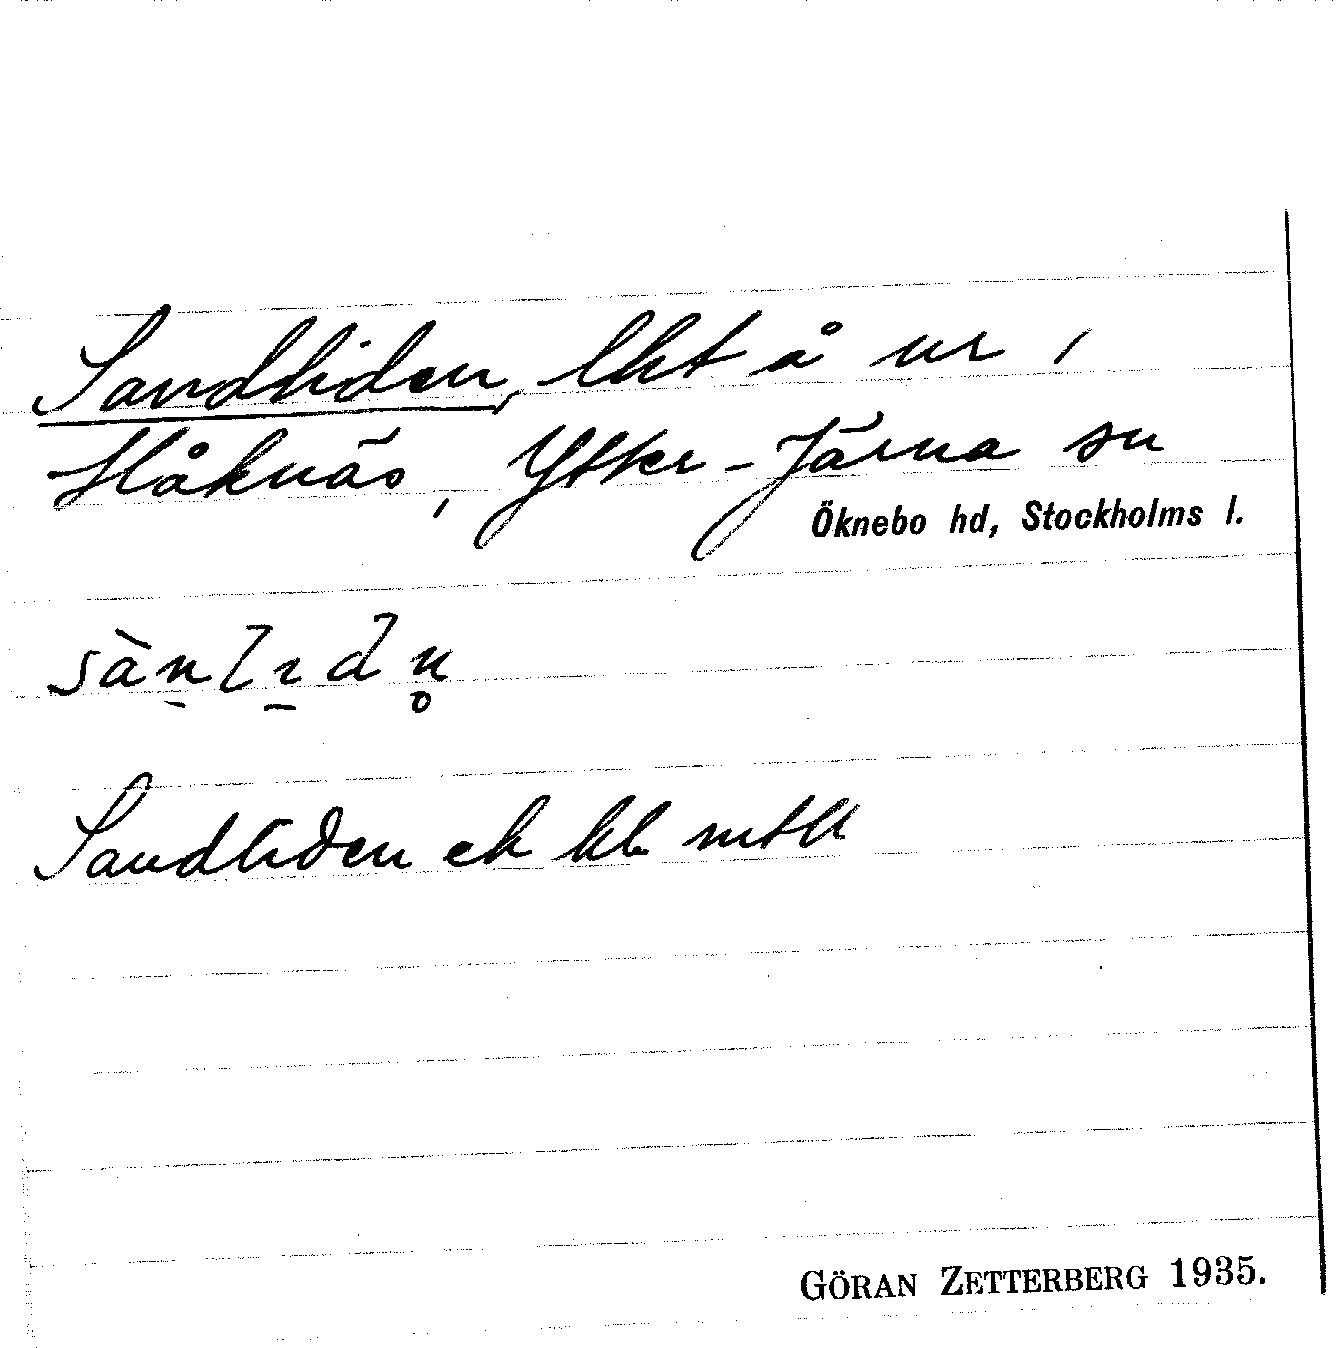 Sandliden, lht å nr 1
Håknäs, Ytter-Järna sn
Öknebo hd, Stockholms l.
Sandliden ek kb mtll
GÖRAN ZETTERBERG 1935.